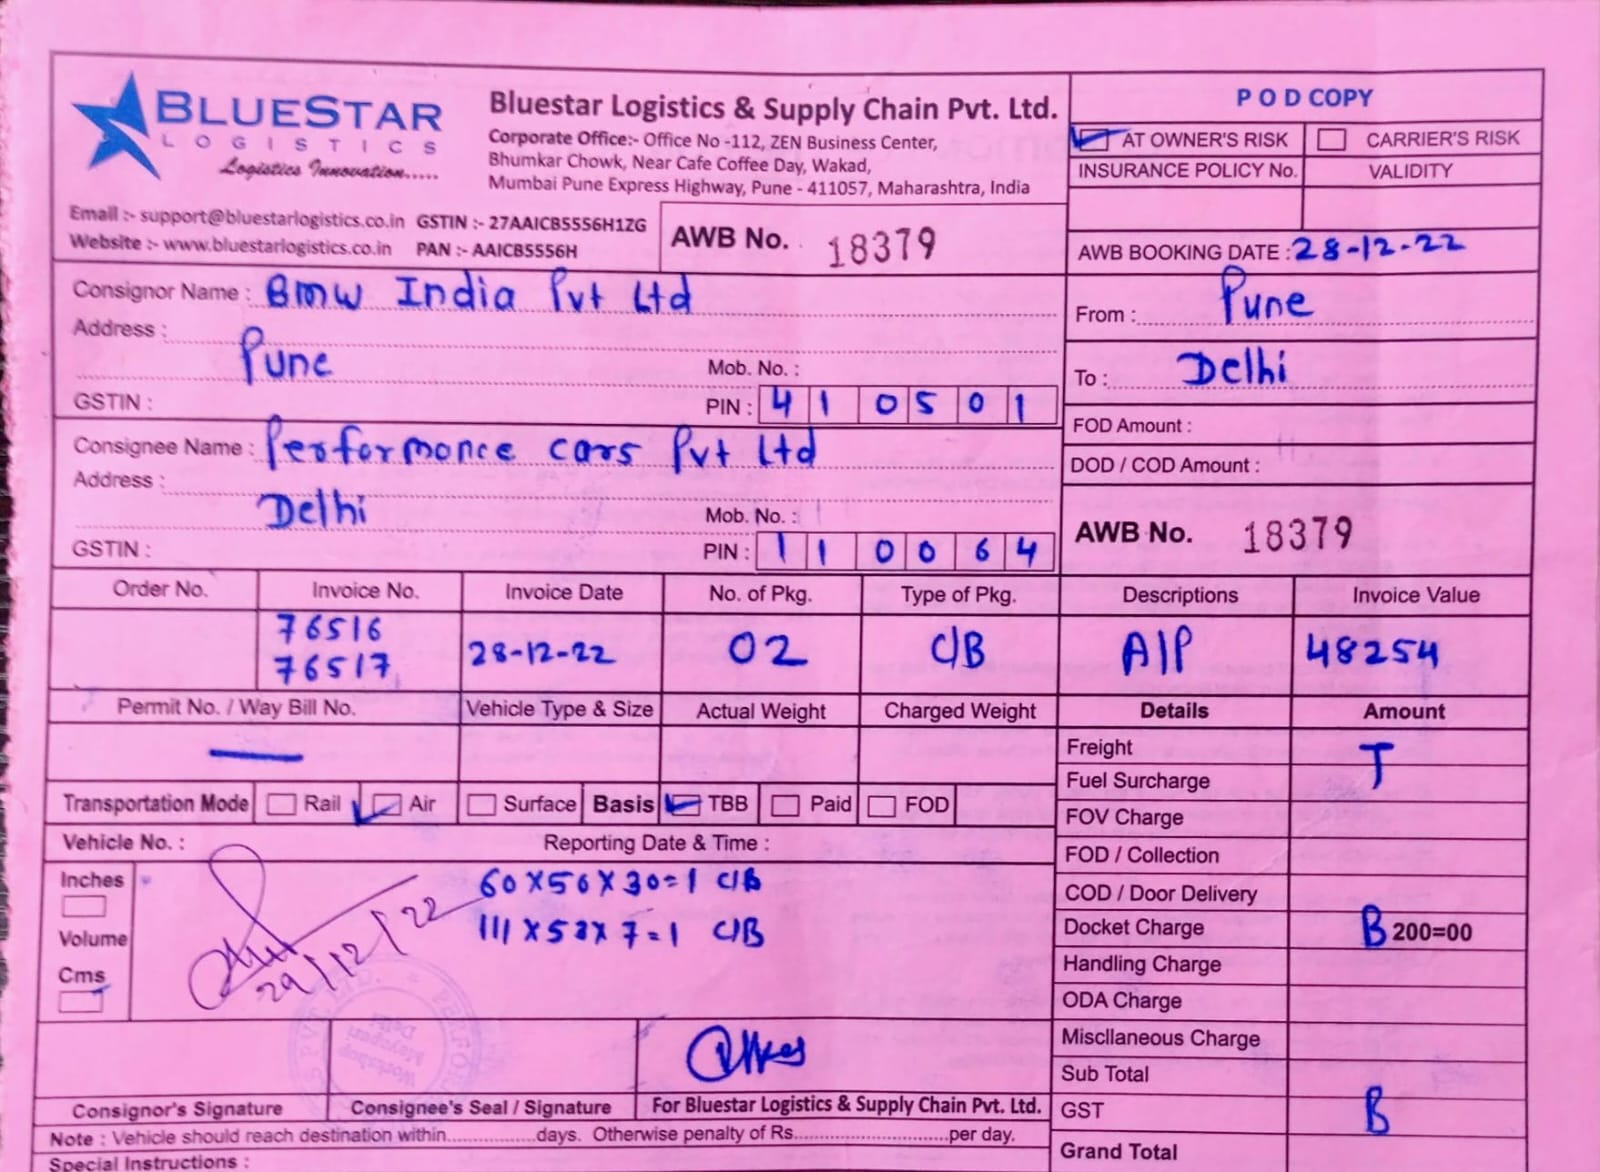 BLUESTAR
LOGISTICS
Logistics Innovation.....
Bluestar Logistics & Supply Chain Pvt. Ltd.
Corporate Office:- Office No -112, ZEN Business Center,
Bhumkar Chowk, Near Cafe Coffee Day, Wakad,
Mumbai Pune Express Highway, Pune - 411057, Maharashtra, India
Email :- support@bluestarlogistics.co.in GSTIN :- 27AAICB5556H1ZG
Website :- www.bluestarlogistics.co.in PAN :- AAICB5556H
AWB No. 18379
P O D COPY
AT OWNER'S RISK CARRIER'S RISK
INSURANCE POLICY No. VALIDITY
AWB BOOKING DATE : 28-12-22
Consignor Name : BMW India Pvt Ltd
Address :
Pune
Mob. No. :
GSTIN : PIN : 4 1 0 5 0 1
From : Pune
To : Delhi
FOD Amount :
DOD / COD Amount :
Consignee Name : Performonce cars Pvt Ltd
Address :
Delhi
Mob. No. :
GSTIN : PIN : 1 1 0 0 6 4
AWB No. 18379
Order No. Invoice No. Invoice Date No. of Pkg. Type of Pkg. Descriptions Invoice Value
76516
76517 28-12-22 02 C/B A/P 48254
Permit No. / Way Bill No. Vehicle Type & Size Actual Weight Charged Weight Details Amount
Freight T
Fuel Surcharge
FOV Charge
FOD / Collection
COD / Door Delivery
Docket Charge B 200=00
Handling Charge
ODA Charge
Miscllaneous Charge
Sub Total
GST B
Grand Total
Transportation Mode Rail Air Surface Basis TBB Paid FOD
Vehicle No. : Reporting Date & Time :
Inches
Volume
Cms
60X56X30=1 C/B
111X53X7=1 C/B
29/12/22
PVT. LTD. * PERFO
Workshop
Mayapuri
Delhi
Consignor's Signature Consignee's Seal / Signature For Bluestar Logistics & Supply Chain Pvt. Ltd.
Note : Vehicle should reach destination within................days. Otherwise penalty of Rs...........................per day.
Special Instructions :